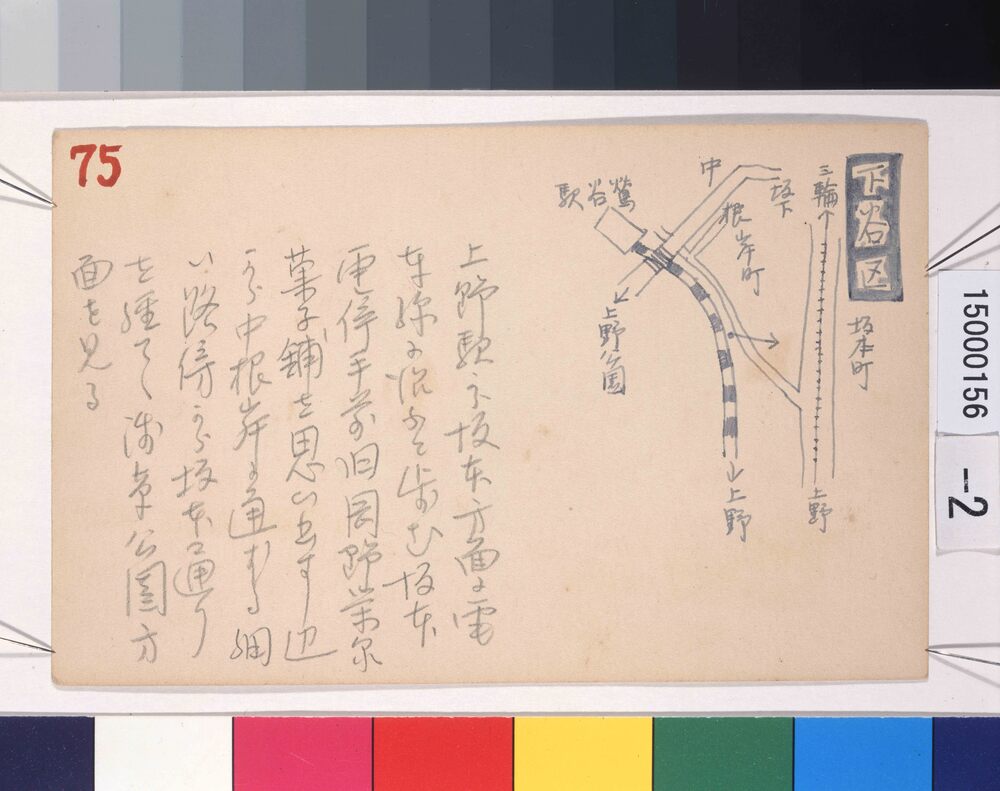 75
下谷区
三輪
坂本町
上野
坂下
中
根岸町
鶯谷駅
上野公園
上野
上野駅より坂本方面に電
車線に沿ふて歩む坂本
電停手前旧岡野栄泉
菓子舗を思い出す辺
から中根岸に通ずる細
い路傍から坂本通り
を経て浅草公園方
面を見る
15000156
-2